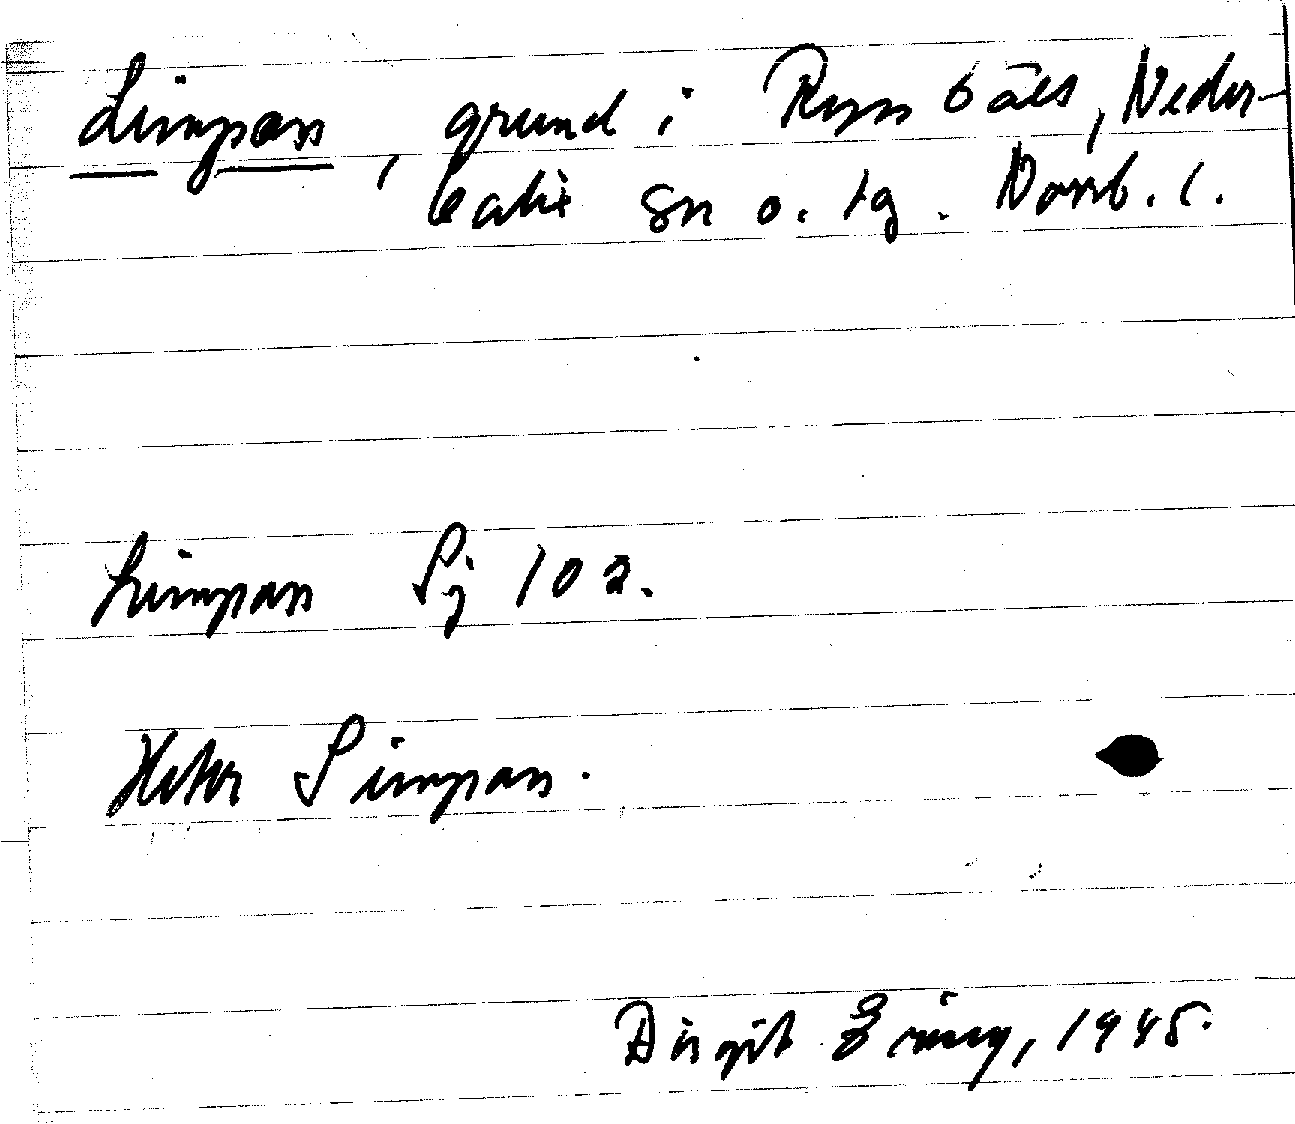 Limpan, grund i Ryssbält, Neder-
kalix sn o. tg. Norrb. l.
Limpan Sj 102.
Heter Limpan.
Birgit 1945.